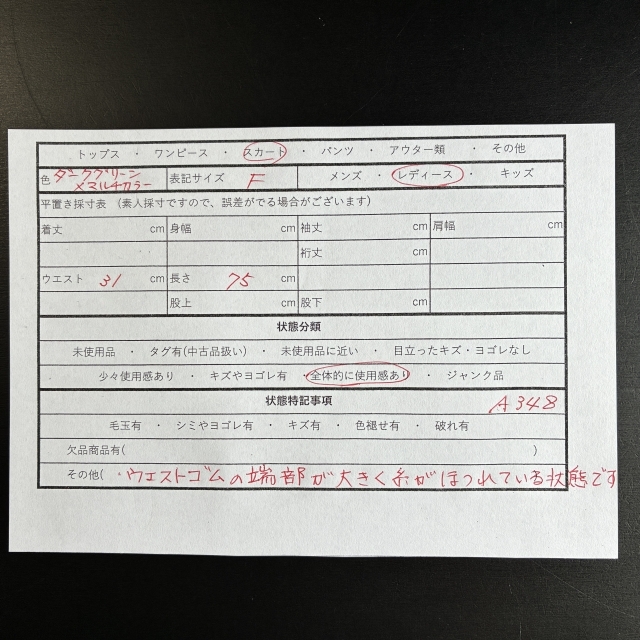 トップス ・ ワンピース ・ スカート ・ パンツ ・ アウター類 ・ その他
色 ダークグリーン ×マルチカラー 表記サイズ F メンズ ・ レディース ・ キッズ
平置き採寸表 (素人採寸ですので、誤差がでる場合がございます)
着丈 cm 身幅 cm 袖丈 cm 肩幅 cm
裄丈 cm
ウエスト 31 cm 長さ 75 cm
股上 cm 股下 cm
状態分類
未使用品 ・ タグ有(中古品扱い) ・ 未使用品に近い ・ 目立ったキズ・ヨゴレなし
少々使用感あり ・ キズやヨゴレ有 ・ 全体的に使用感あり ・ ジャンク品
状態特記事項 A348
毛玉有 ・ シミやヨゴレ有 ・ キズ有 ・ 色褪せ有 ・ 破れ有
欠品商品有( )
その他( ・ウエストゴムの端部が大きく糸がほつれている状態です